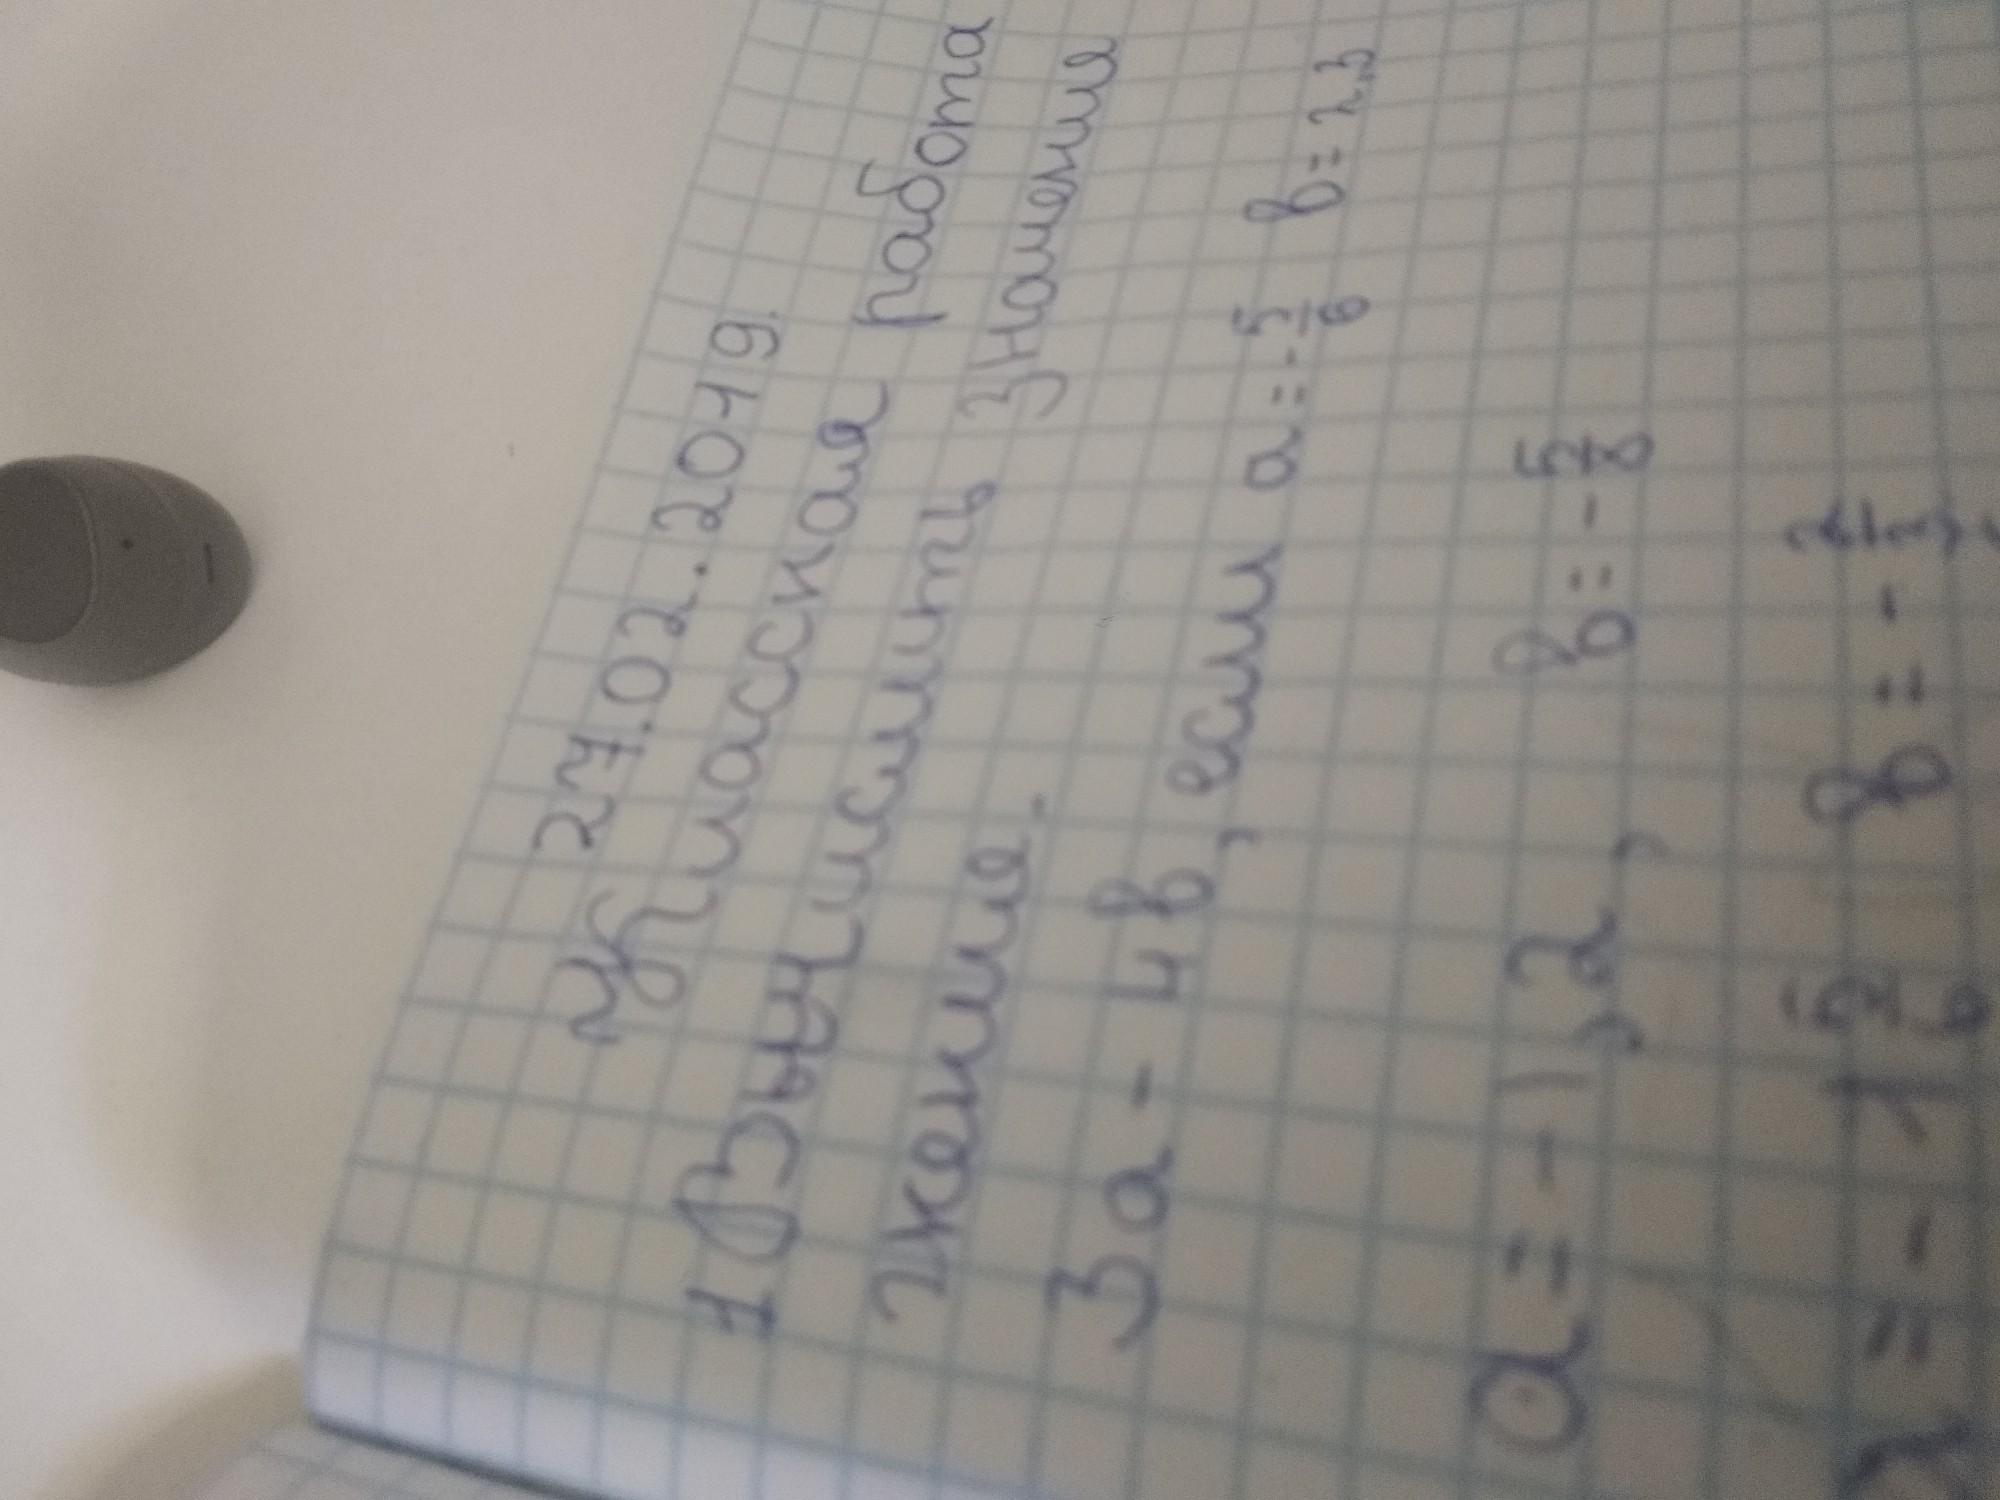 27.02.2019.
Классная работа
1 Вычислить значения
жения.
3a - 4b, если a = -5/6 b = 2,3
a = -1,2, b = -5/8
b = -